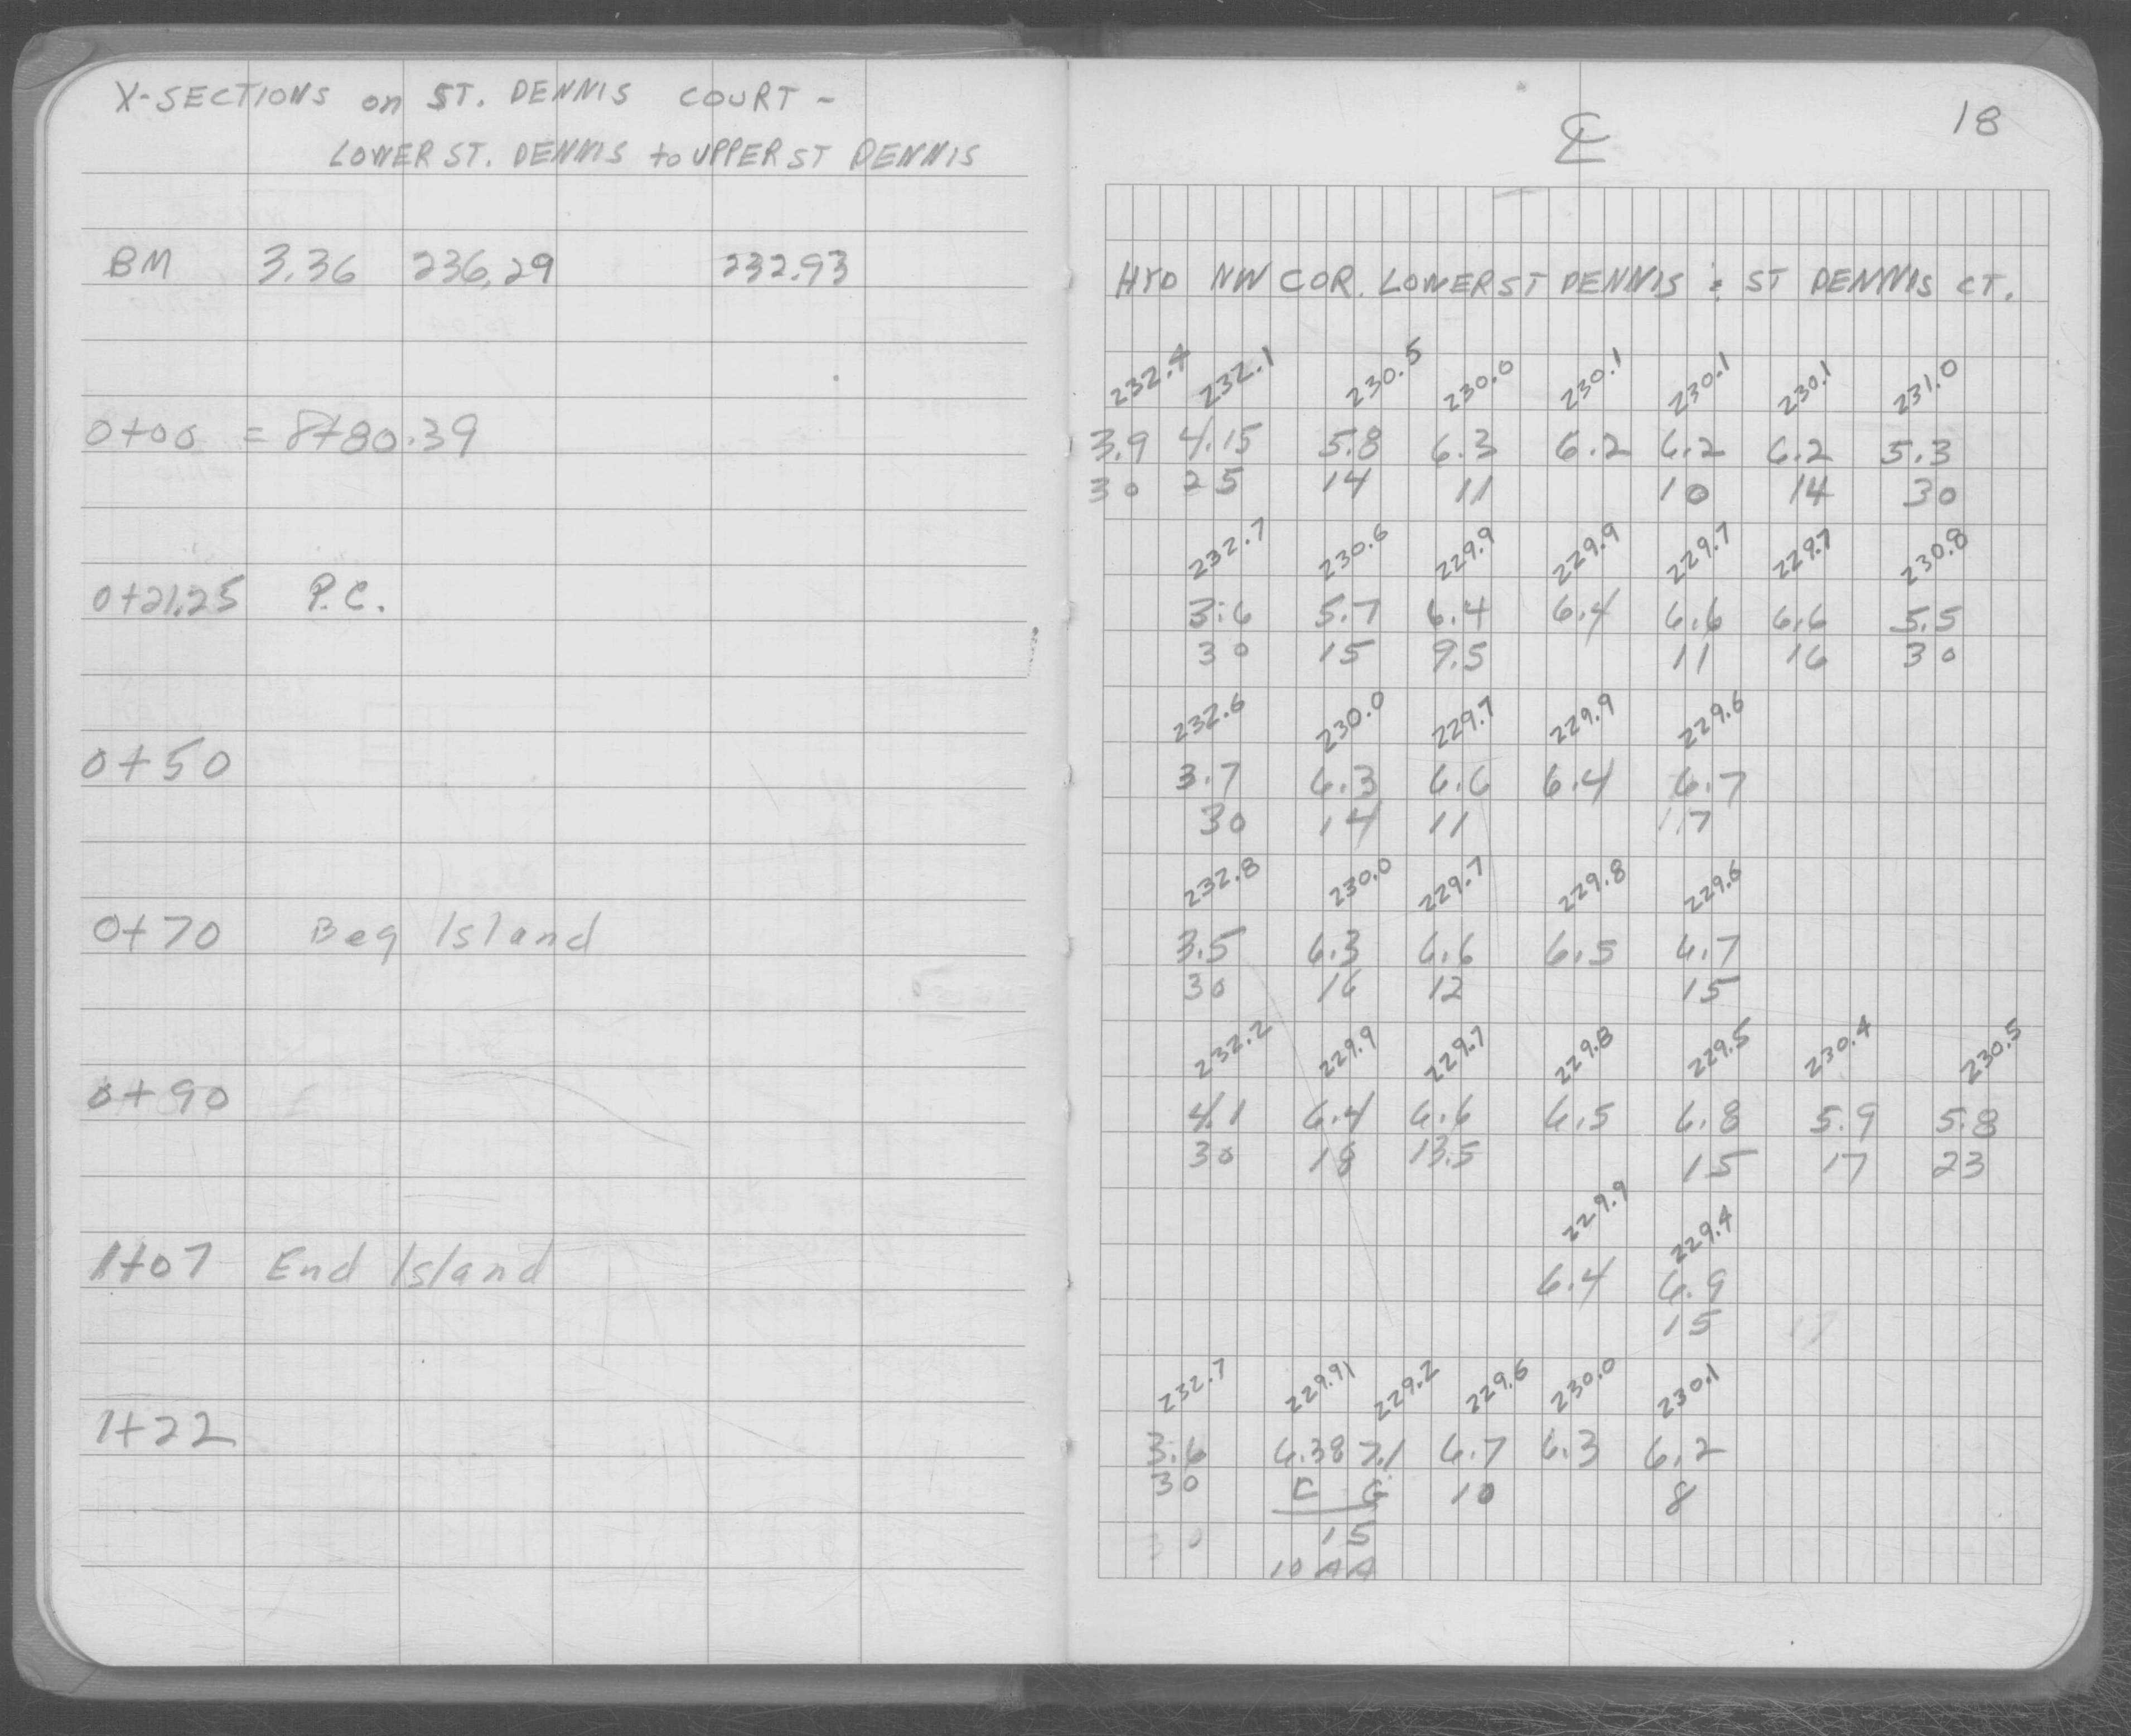 X-SECTIONS on ST. DENNIS COURT -
LOWER ST. DENNIS to UPPER ST DENNIS
BM 3.36 236.29 232.93
0+00 = 8+80.39
0+21.25 P.C.
0+50
0+70 Beg Island
0+90
1+07 End Island
1+22
18
℄
HYD NW COR. LOWER ST DENNIS & ST DENNIS CT.
232.4 232.1 230.5 230.0 230.1 230.1 230.1 231.0
3.9 4.15 5.8 6.3 6.2 6.2 6.2 5.3
30 25 14 11 10 14 30
232.7 230.6 229.9 229.9 229.7 229.7 230.8
3.6 5.7 6.4 6.4 6.6 6.6 5.5
30 15 9.5 11 16 30
232.6 230.0 229.7 229.9 229.6
3.7 6.3 6.6 6.4 6.7
30 14 11 17
232.8 230.0 229.7 229.8 229.6
3.5 6.3 6.6 6.5 6.7
30 16 12 15
232.2 229.9 229.7 229.8 229.5 230.4 230.5
4.1 6.4 6.6 6.5 6.8 5.9 5.8
30 18 13.5 15 17 23
229.9 229.4
6.4 6.9
15
232.7 229.91 229.2 229.6 230.0 230.1
3.6 6.38 7.1 6.7 6.3 6.2
30 C G 10 8
15
10 AA